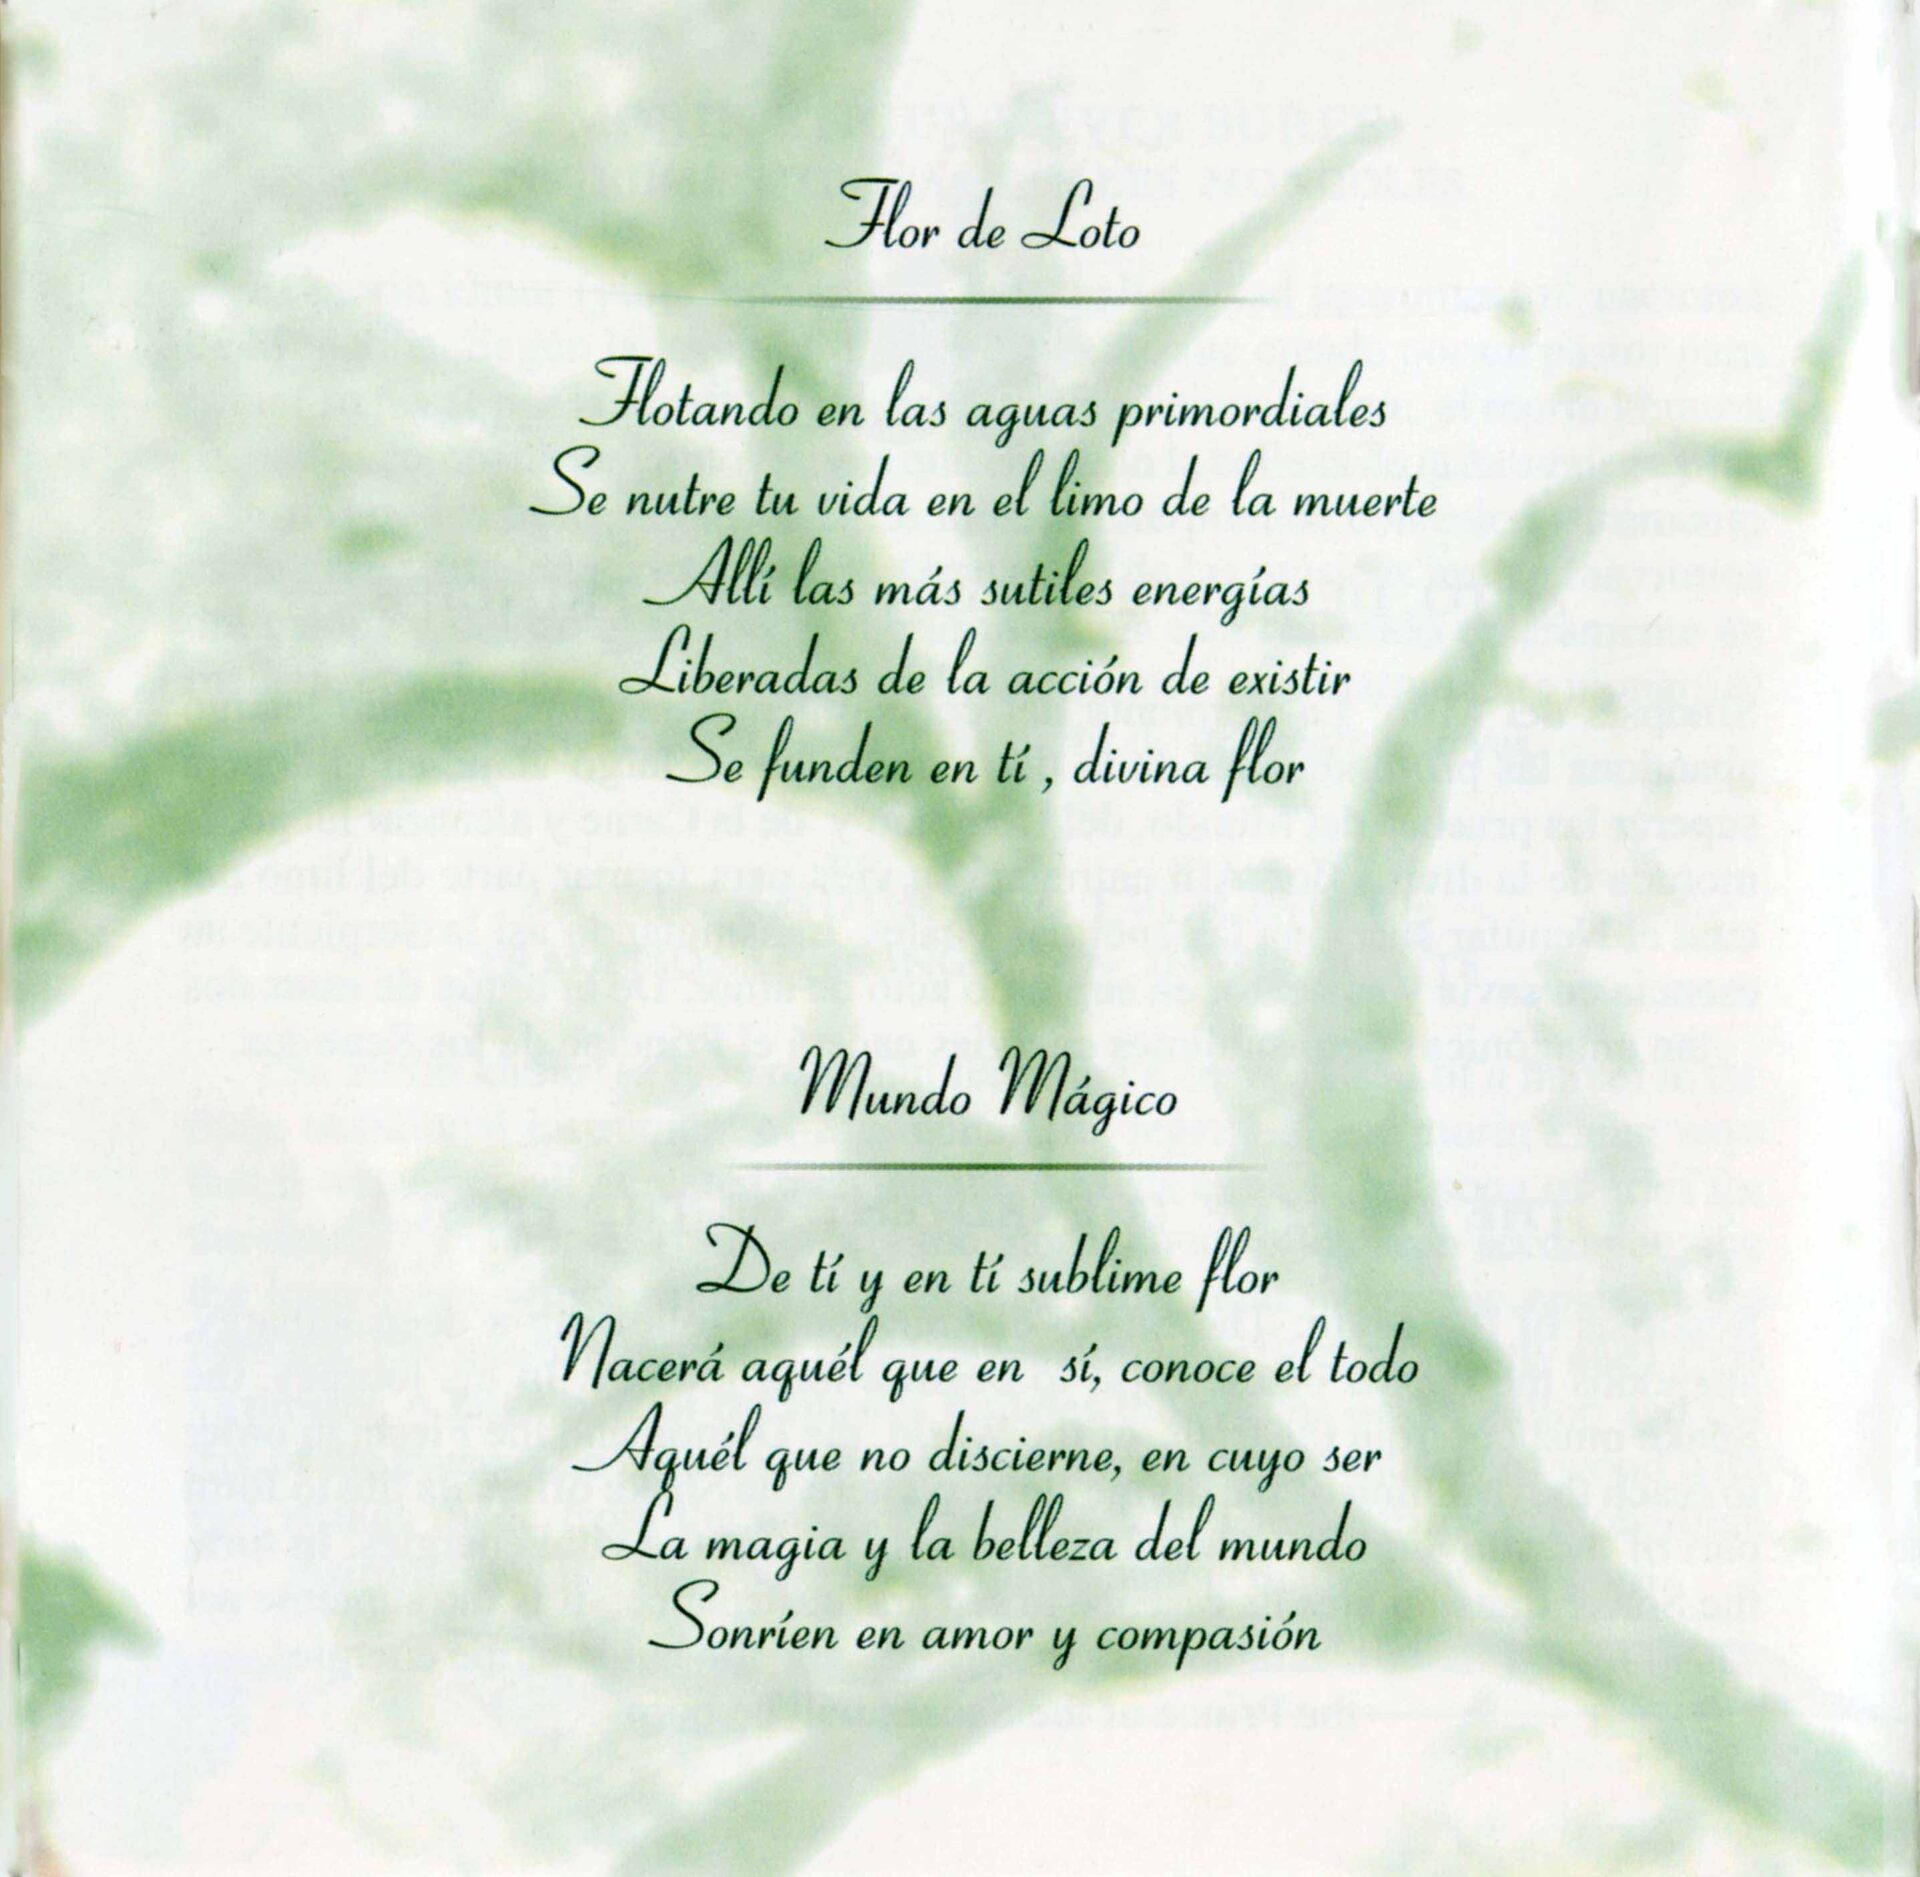 Flor de Loto
Flotando en las aguas primordiales
Se nutre tu vida en el limo de la muerte
Allí las más sutiles energías
Liberadas de la acción de existir
Se funden en tí , divina flor
Mundo Mágico
De tí y en tí sublime flor
Nacerá aquél que en  sí, conoce el todo
Aquél que no discierne, en cuyo ser
La magia y la belleza del mundo
Sonríen en amor y compasión